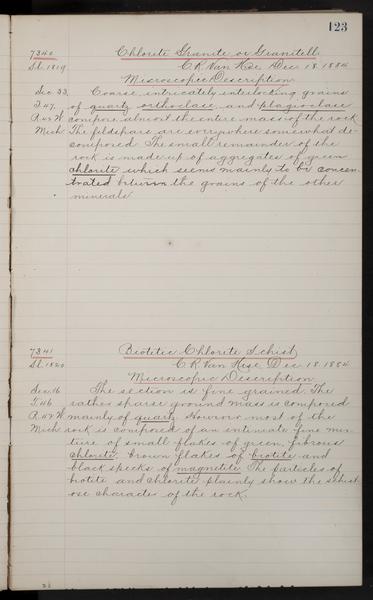 123
7340 Chlorite Granite or Granitell
Sl. 1819 C. R. Van Hise, Dec. 18. 1884
Microscopic Description
Sec. 33, Coarse, intricately interlocking grains
T. 47, of quartz, orthoclase, and plagioclase
R. 42 W. compose almost the entire mass of the rock.
Mich. The feldspars are everywhere somewhat de-
composed. The small remainder of the
rock is made up of aggregates of green
chlorite which seems mainly to be concen-
trated between the grains of the other
minerals
7341 Biotitic Chlorite Schist
Sl. 1820 C. R. Van Hise, Dec. 18. 1884
Microscopic Description
Sec. 16 The section is fine grained. The
T. 46 rather sparse ground mass is composed
R. 42 W. mainly of quartz. However most of the
Mich. rock is composed of an intimate fine mix-
ture of small flakes of green, fibrous
chlorite, brown flakes of biotite and
black specks of magnetite. The particles of
biotite and chlorite plainly show the schist-
ose character of the rock.